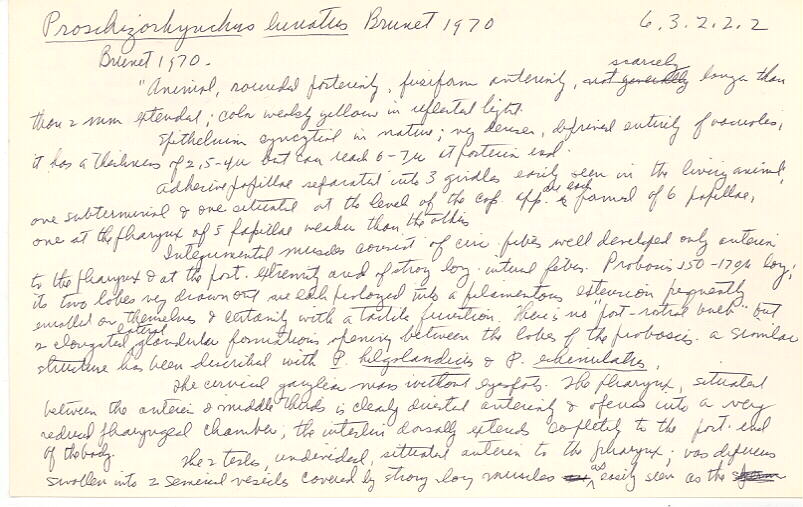 Proschizorhynchus lunatus Brunet 1970 6.3.2.2.2
Brunet 1970.
scarcely
"Animal, rounded posteriorly, fusiform anteriorly, not generally longer than
than 2 mm extended; color weakly yellow in reflected light.
Epithelium syncytial in nature; very dense, deprived entirely of vacuoles;
it has a thickness of 2,5-4µ but can reach 6-7µ at posterior end.
Adhesive papillae separated into 3 girdles easily seen in the living animal,
one subterminal & one situated at the level of the cop. app. are each formed of 6 papillae,
one at the pharynx of 5 papillae weaker than the others
Integumental muscles consist of circ. fibers well developed only anterior
to the pharynx & at the post. extremity and of strong long. internal fibers. Proboscis 150-170µ long;
its two lobes very drawn out are each prolonged into a filamentous extension frequently
enrolled on themselves & certainly with a tactile function. There is no "post-rostral bulb" but
2 elongated lateral glandular formations opening between the lobes of the proboscis. A similar
structure has been described with P. helgolandicus & P. echinulatus.
The cervical ganglion mass without eyespots. The pharynx, situated
between the anterior & middle thirds is clearly directed anteriorly & opens into a very
reduced pharyngeal chamber; the intestine dorsally extends completely to the post. end
of the body.
The 2 testes, undivided, situated anterior to the pharynx; vas deferens
swollen into 2 seminal vesicles covered by strong long muscles as easily seen as the